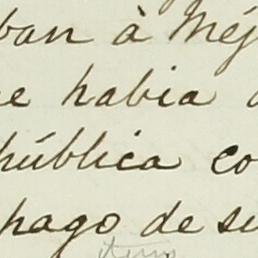 ban à Méj
e habia
pública co
pago de su